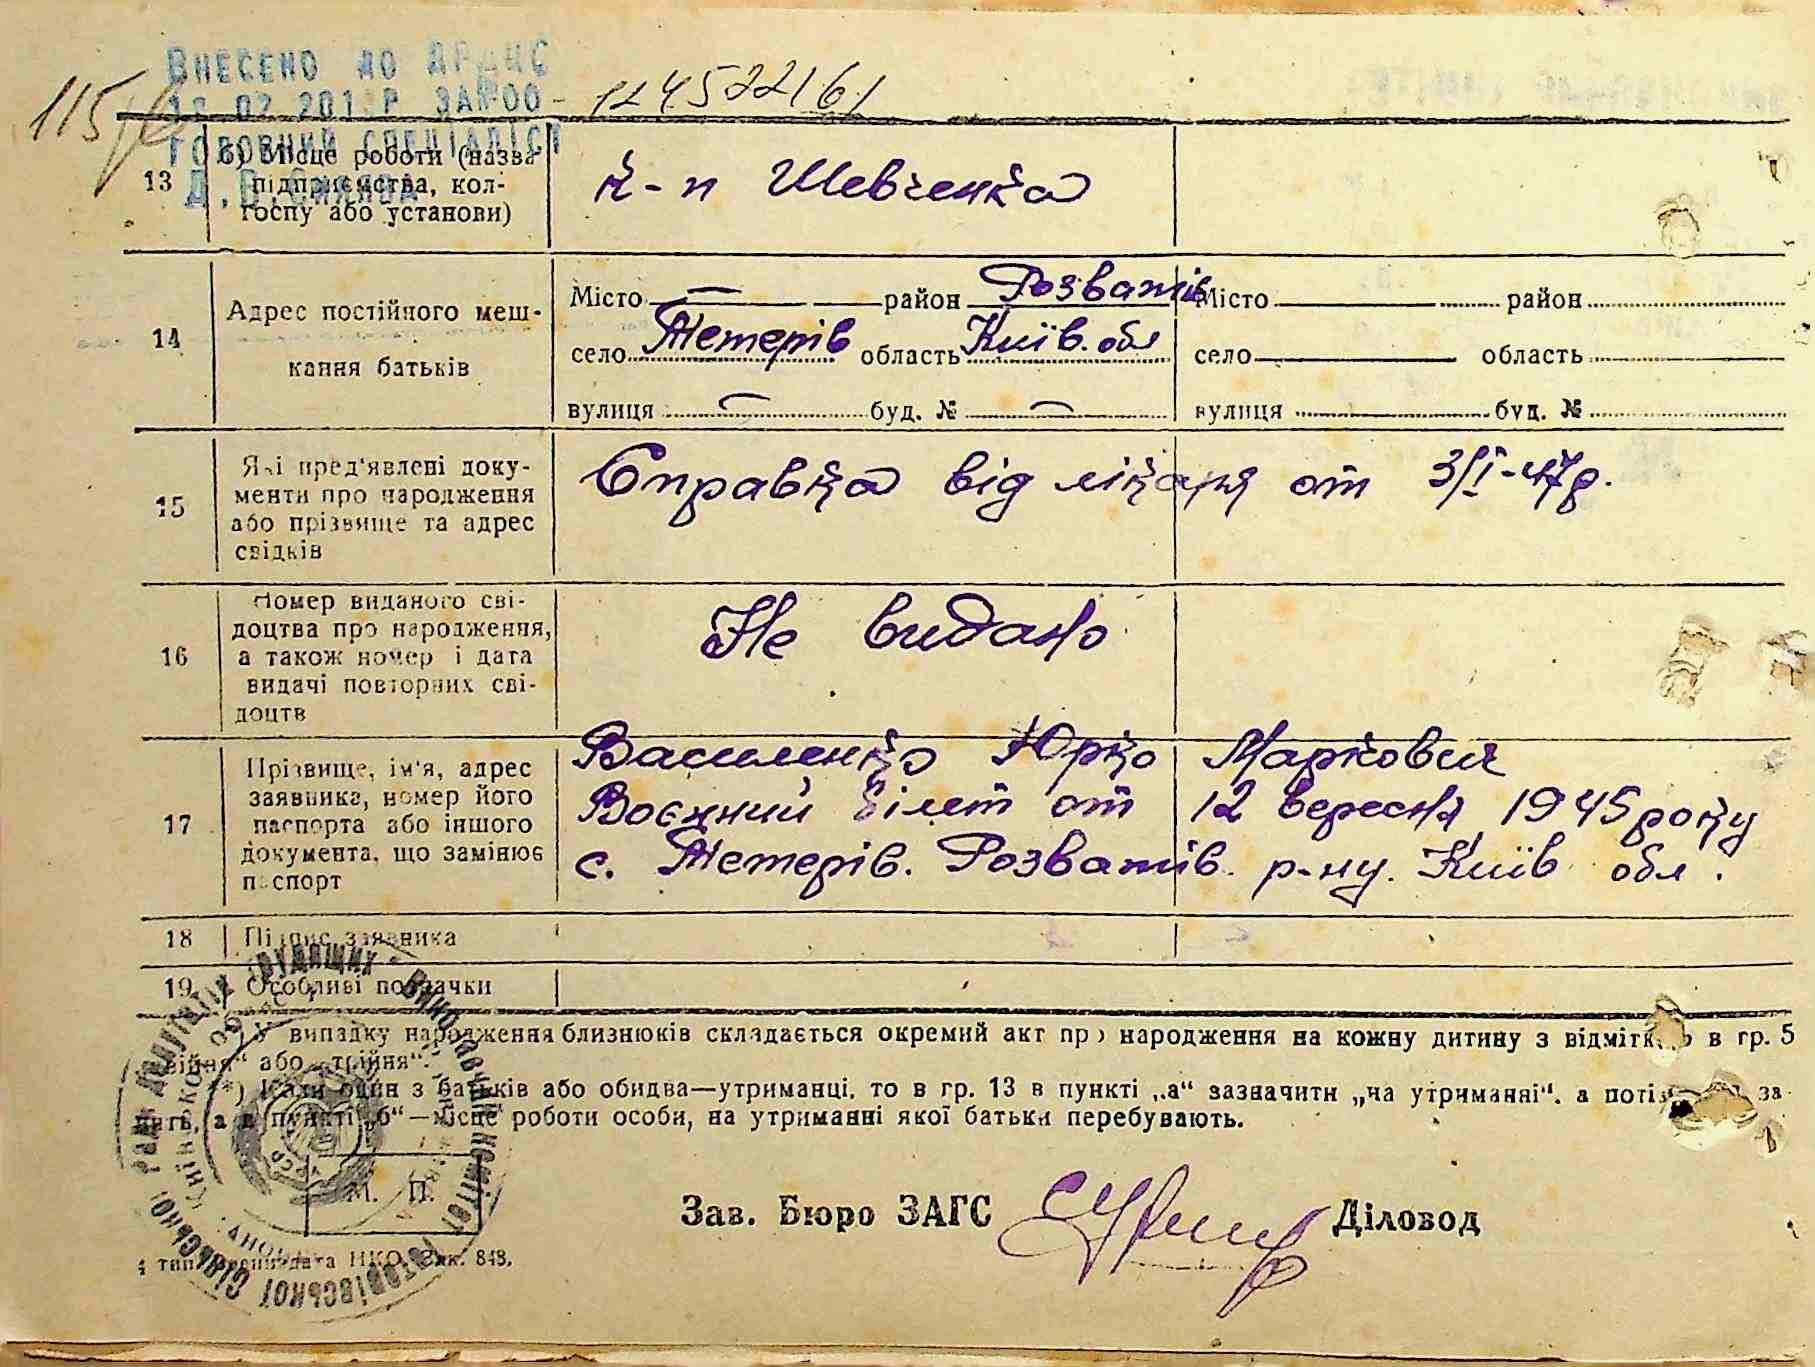 ВНЕСЕНО ДО ДРАЦС
ЗА №00-
124522161
115
ГОЛОВНИЙ СПЕЦІАЛІСТ
13 б) Місце роботи (назва підприємства, колгоспу або установи)
к-п Шевченка
14 Адрес постійного мешкання батьків
Місто — район Розважів
село Тетерів область Київ. обл
вулиця — буд. № —
Місто район
село область
вулиця буд. №
15 Які пред'явлені документи про народження або прізвище та адрес свідків
Справка від лікаря от 3/I-47р.
16 Номер виданого свідоцтва про народження, а також номер і дата видачі повторних свідоцтв
Не видано
17 Прізвище, ім'я, адрес заявника, номер його паспорта або іншого документа, що замінює паспорт
Василенко Юрко Маркович
Воєнний білет от 12 вересня 1945 року
с. Тетерів. Розважів. р-ну. Київ обл.
18 Підпис заявника
19 Особливі позначки
У випадку народження близнюків складається окремий акт про народження на кожну дитину з відміткою в гр. 5
„двійня“ або „трійня“.
*) Коли один з батьків або обидва—утриманці, то в гр. 13 в пункті „а“ зазначити „на утриманні“, а потім за
а в пункті „б“—місце роботи особи, на утриманні якої батьки перебувають.
М. П.
Зав. Бюро ЗАГС
Діловод
4 тип. Зак. 843.